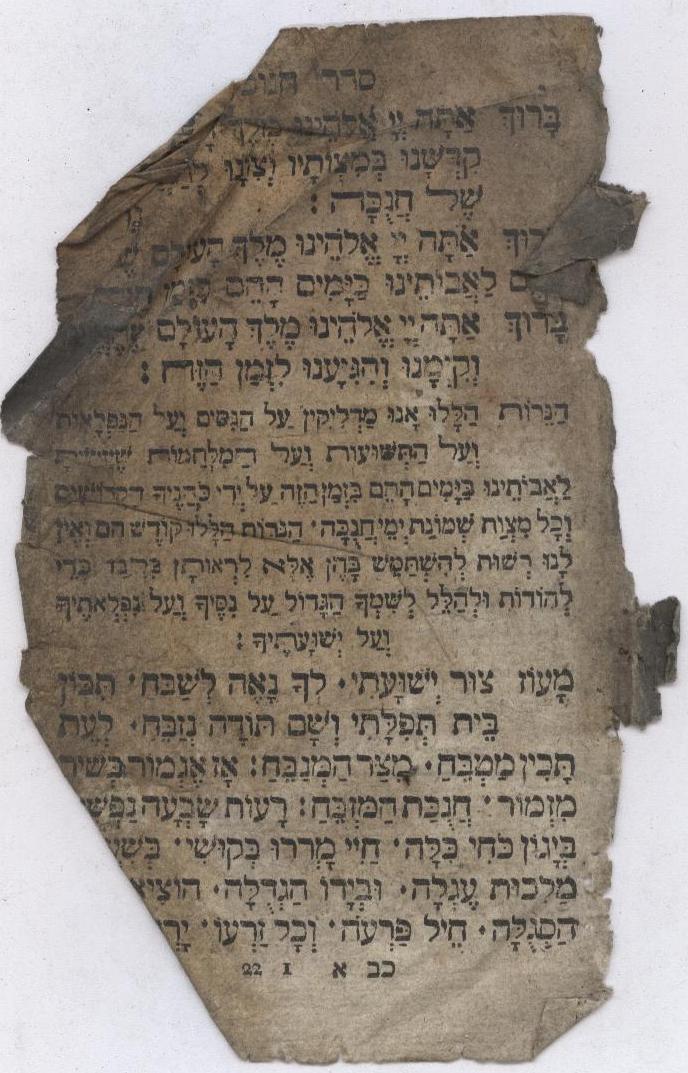 סדר חנוכ
בָּרוּךְ אַתָּה יְיָ אֱלֹהֵינוּ מֶלֶךְ
קִדְּשָׁנוּ בְּמִצְוֹתָיו וְצִוָּנוּ
שֶׁל חֲנֻכָּה׃
רוּךְ אַתָּה יְיָ אֱלֹהֵינוּ מֶלֶךְ הָעוֹלָם
לַאֲבוֹתֵינוּ בַּיָּמִים הָהֵם בַּזְּמַן
בָּרוּךְ אַתָּה יְיָ אֱלֹהֵינוּ מֶלֶךְ הָעוֹלָם
וְקִיְּמָנוּ וְהִגִּיעָנוּ לַזְּמַן הַזֶּה׃
הַנֵּרוֹת הַלָּלוּ אָנוּ מַדְלִיקִין עַל הַנִּסִּים וְעַל הַנִּפְלָאוֹת
וְעַל הַתְּשׁוּעוֹת וְעַל הַמִּלְחָמוֹת
לַאֲבוֹתֵינוּ בַּיָּמִים הָהֵם בַּזְּמַן הַזֶּה עַל יְדֵי כֹּהֲנֶיךָ הקדושים
וְכָל מִצְוַת שְׁמוֹנַת יְמֵי חֲנֻכָּה· הַנֵּרוֹת הַלָּלוּ קוֹדֶשׁ הֵם וְאֵין
לָנוּ רְשׁוּת לְהִשְׁתַּמֵּשׁ בָּהֶן אֶלָּא לִרְאוֹתָן בִּלְבַד כְּדֵי
לְהוֹדוֹת וּלְהַלֵּל לְשִׁמְךָ הַגָּדוֹל עַל נִסֶּיךָ וְעַל נִפְלְאֹתֶיךָ
וְעַל יְשׁוּעָתֶיךָ׃
מָעוֹז צוּר יְשׁוּעָתִי· לְךָ נָאֶה לְשַׁבֵּחַ· תִּכּוֹן
בֵּית תְּפִלָּתִי וְשָׁם תּוֹדָה נְזַבֵּחַ· לְעֵת
תָּכִין מַטְבֵּחַ· מִצַּר הַמְנַבֵּחַ׃ אָז אֶגְמוֹר בְּשִׁיר
מִזְמוֹר· חֲנֻכַּת הַמִּזְבֵּחַ׃ רָעוֹת שָׂבְעָה נַפְשִׁי
בְּיָגוֹן כֹּחִי כָּלָה· חַיַּי מָרְרוּ בְּקוּשִׁי·
מַלְכוּת עֶגְלָה· וּבְיָדוֹ הַגְּדֻלָּה· הוֹצִיא
הַסְּגֻלָּה· חֵיל פַּרְעֹה· וְכָל זַרְעוֹ·
כב א 1 22